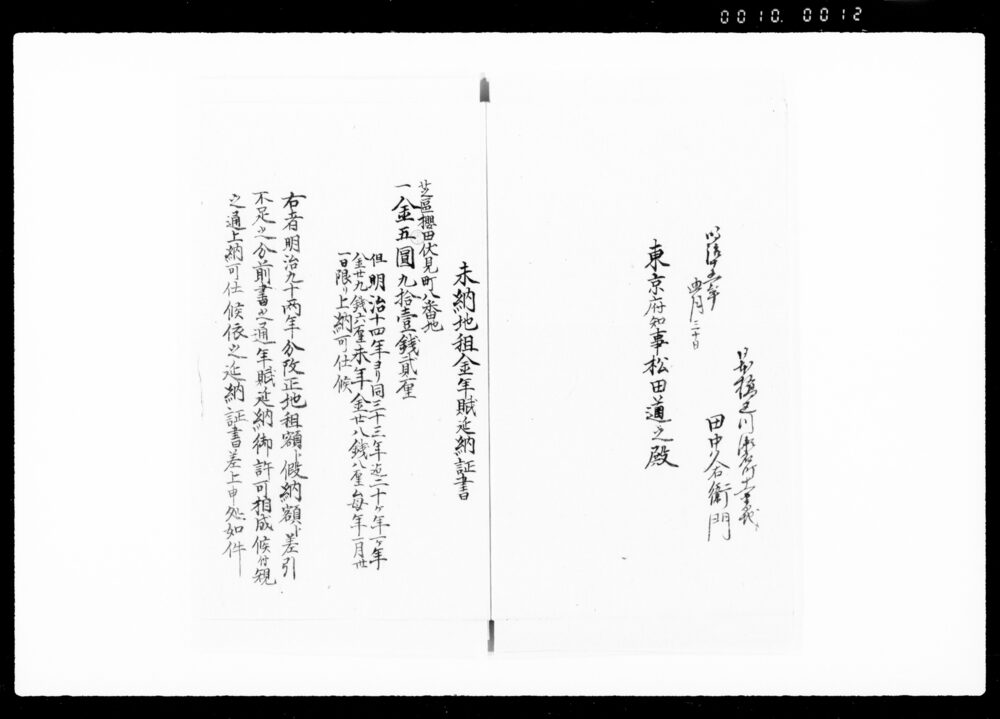 0010. 0012
明治十五年
四月三十日
田中久右衛門
東京府知事松田道之殿
未納地租金年賦延納証書
芝區櫻田伏見町八番地
一金五圓九拾壹錢貳厘
但明治十四年ヨリ同三十三年迠二十ヶ年一ヶ年
金廿九錢六厘未年金廿八錢八厘每年一月卅
一日限リ上納可仕候
右者明治九十兩年分改正地租額ト假納額ト差引
不足之分前書之通年賦延納御許可相成候付規
之通上納可仕候依之延納証書差上申処如件